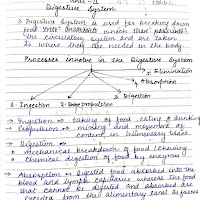 Unit - II
Digestive System
→ Digestive System is used for breaking down
food into nutrients which then
the circulatory system and are taken
to where they are needed in the body.
Processes involve in the Digestive System
Elimination
Absorption
Digestion
1. Ingestion 2. Propulsion
→ Ingestion → taking of food, eating & drinking
→ Propulsion → mixing and movement of
content in alimentary
→ Digestion →
• Mechanical breakdown of food (chewing
• Chemical digestion of food by enzymes
→ Absorption → Digested food absorbed into the
blood and lymph capillaries whereas the food
that cannot be digested and absorbed are
excreted from the alimentary canal as faeces